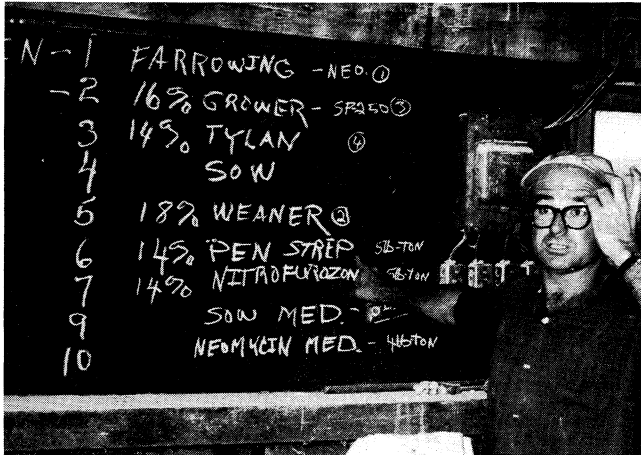 N-1 FARROWING - NEO. ①
-2 16% GROWER - SP250 ③
3 14% TYLAN ④
4 SOW
5 18% WEANER ②
6 14% PEN STREP 5lb-TON
7 14% NITROFUROZON lb-TON
9 SOW MED. -
10 NEOMYCIN MED. - 4lb-TON